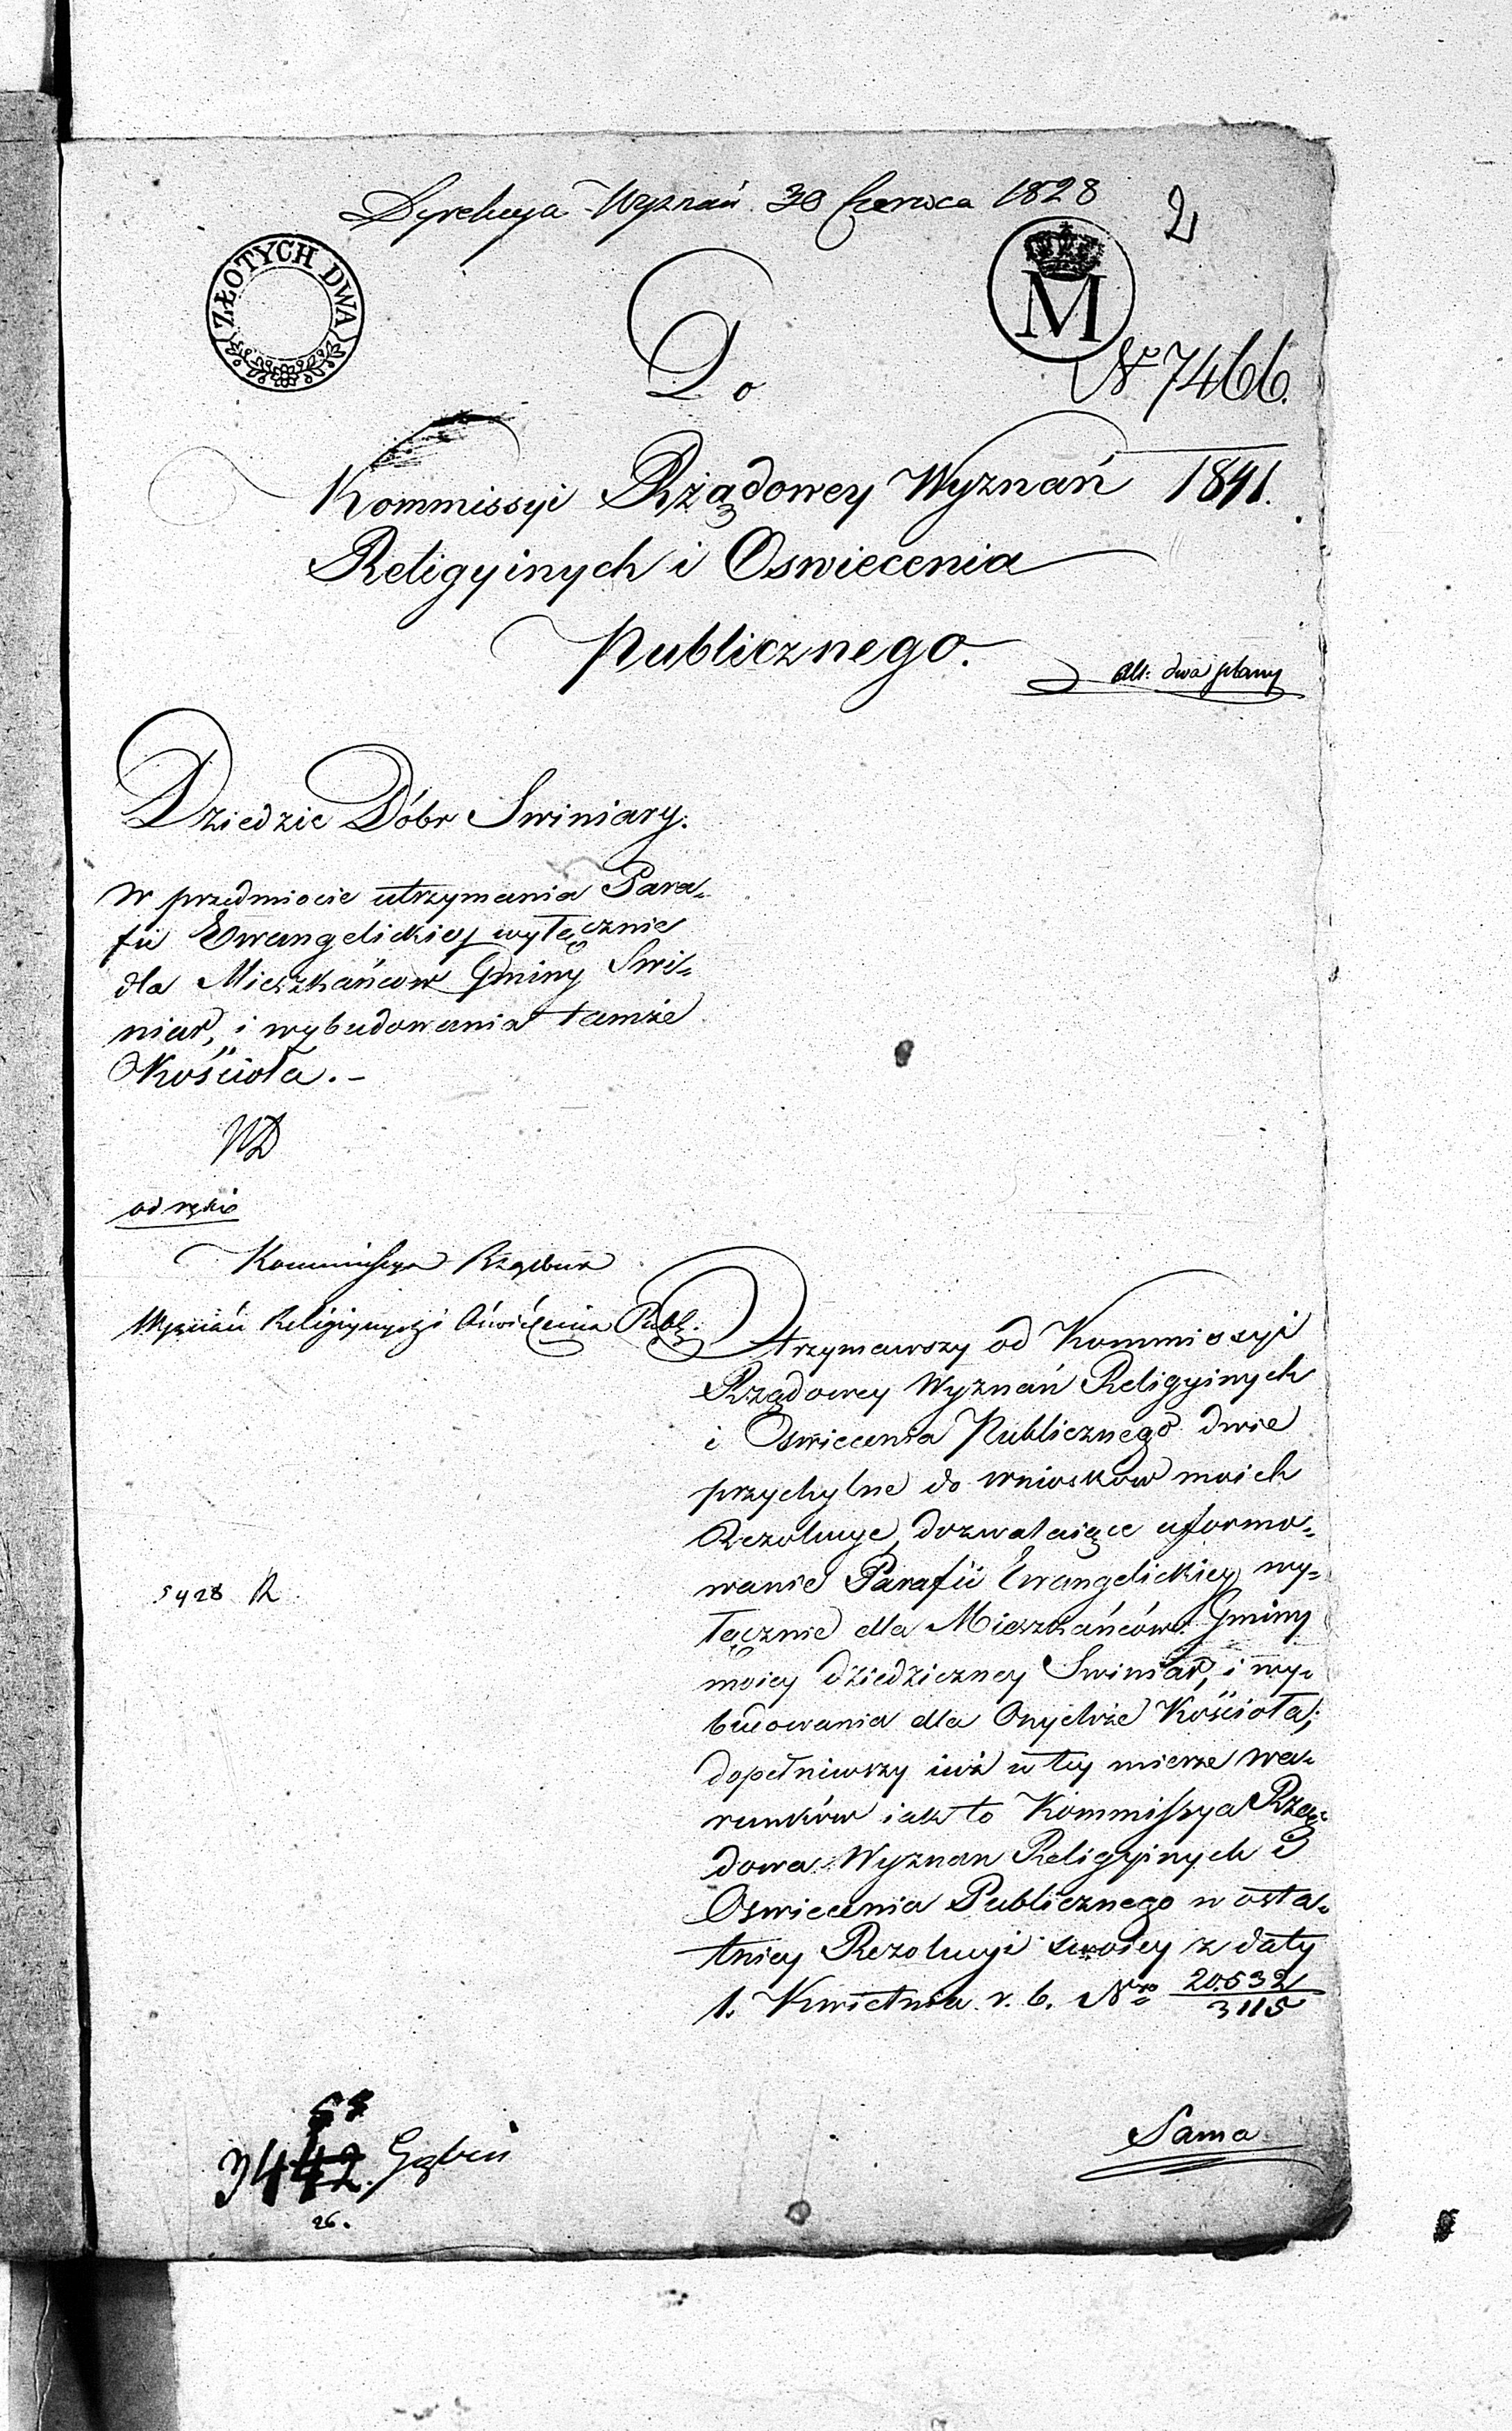 Dyrekcya Wyznań 30 Czerwca 1828
2
ZŁOTYCH DWA
M
Do
No 7466.
1841.
Kommissyi Rządowey Wyznań
Religyinych i Oswiecenia
Publicznego.
all: dwa plany
Dziedzic Dóbr Swiniary.
w przedmiocie utrzymania Para=
fii Ewangelickiey wyłącznie
dla Mieszkańcow Gminy Swi=
niar, i wybudowania tamże
Kościoła.-
WD
od ręki
Kommissya Rządowa
Wyznań Religiynych i Oświecenia Publ:
Otrzymawszy od Kommissyi
Rządowey Wyznań Religyinych
i Oswiecenia Publicznego dwie
przychylne do wniosków moich
Rezolucye, dozwalaiące uformo=
wanie Parafii Ewangelickiey wy=
łącznie dla Mieszkańców Gminy
moiey dziedziczney Swiniar, i wy=
budowania dla Onychże Kościoła;
dopełniwszy iuż w tey mierze wa=
runków iak to Kommissya Rzą=
dowa Wyznan Religyinych i
Oswiecenia Publicznego w osta=
tniey Rezolucyi swoiey z daty
1. Kwietnia r. b. Nro 20532/3115
5428 R
3442. Gąbin
26.
Sama